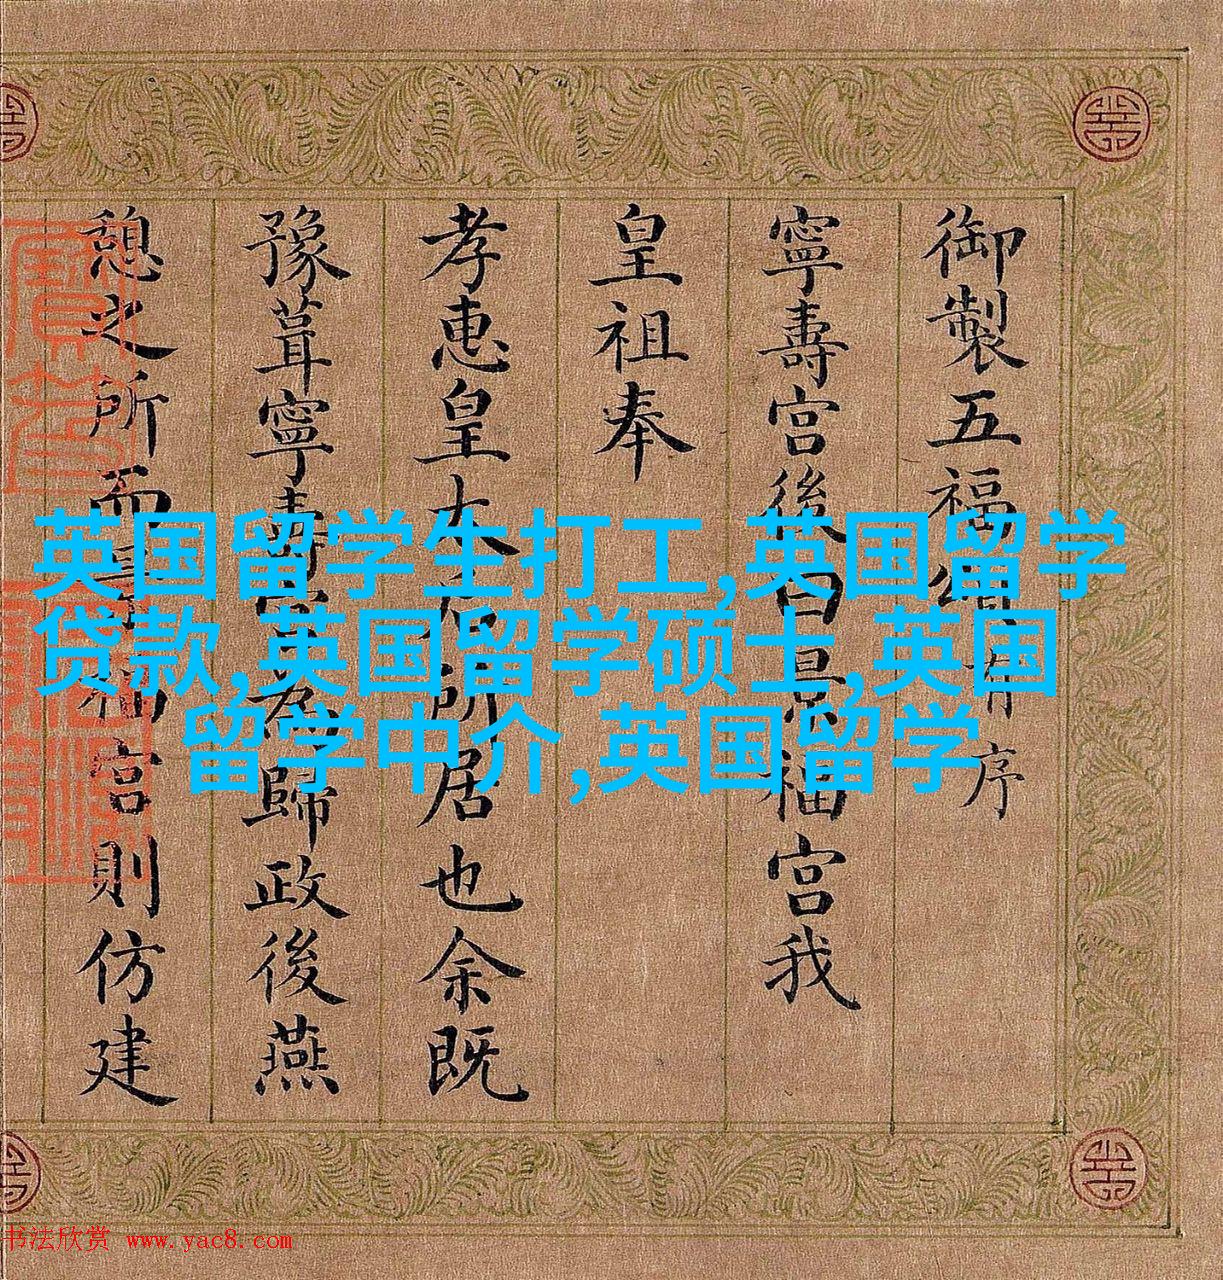 御製五福頌有序
寧壽宮後曰景福宮我
皇祖奉
孝惠皇太后所居也余既
豫葺寧壽宮為歸政後燕
憩之所而福宮則仿建
英国留学生打工,英国留学
贷款,英国留学硕士,英国
留学中介,英国留学
书法欣赏 www.yac8.com